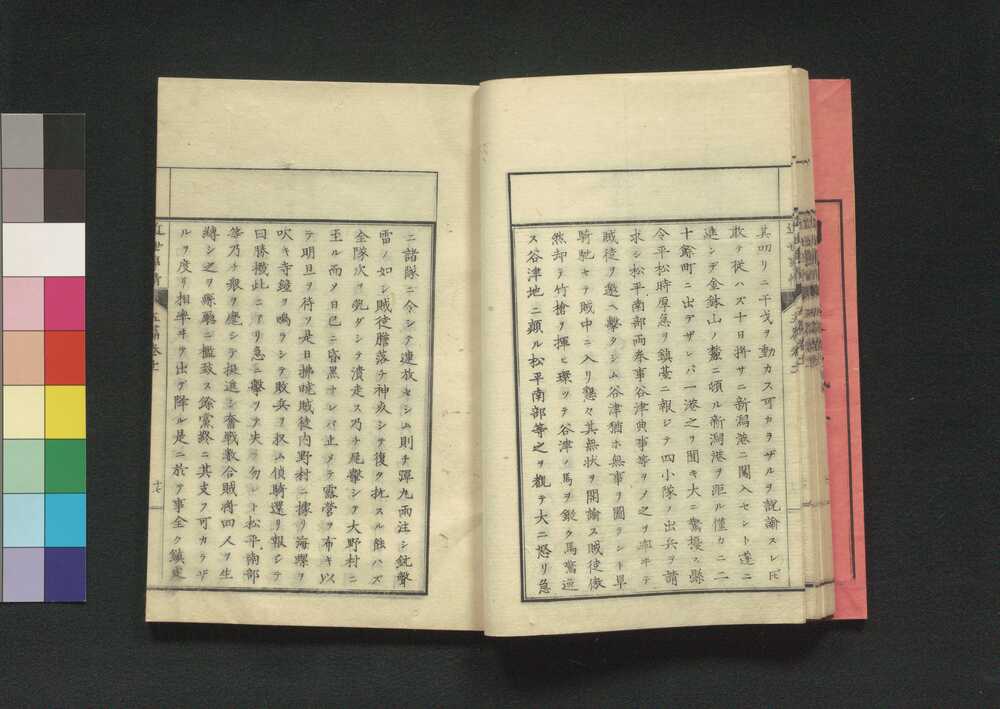 其叨リニ干戈ヲ動カス可カラザルヲ説諭スレ𪜈
敢テ従ハズ十日將サニ新潟港ニ闖入セント遂ニ
進ンデ金鉢山ノ麓ニ頓ル新潟港ヲ距ル僅カニ二
十餘町ニ出デザレバ一港之ヲ聞キ大ニ驚擾ス縣
令平松時厚急ヲ鎮臺ニ報ジテ四小隊ノ出兵ヲ請
求シ松平南部両参事谷津典事等ヲノ之ヲ率ヰテ
賊徒ヲ邀ヘ擊タシム谷津猶ホ無事ヲ圖ラント單
騎馳セテ賊中ニ入リ懇々其無状ヲ開諭ス賊徒傲
然却テ竹槍ヲ揮ヒ環ツテ谷津ノ馬ヲ毆ク馬驚逼
ス谷津地ニ顛ル松平南部等之ヲ觀テ大ニ怒リ急
ニ諸隊ニ令シテ連放セシム則チ彈丸雨注シ銃聲
雷ノ如シ賊徒膽落チ神疚シテ復タ抗スル能ハズ
全隊次ヲ乱ダシテ潰走ス乃チ尾擊シテ大野村ニ
至ル而ノ日已ニ昏黑ナレバ止メテ露營ヲ布キ以
テ明旦ヲ待ツ是日拂曉賊徒内野村ニ據リ海螺ヲ
吹キ寺鐘ヲ鳴ラシテ敗兵ヲ収ム偵騎還リ報シテ
曰勝機此ニアリ急ニ擊ツテ失フ勿レト松平南部
等乃チ衆ヲ麾シテ挺進シ奮戰數合賊將四人ヲ生
縛シ之ヲ縣廳ニ檻致ス餘黨終ニ其支フ可カラザ
ルヲ度リ相率ヰテ出デ降ル是ニ於テ事全ク鎮定
十七